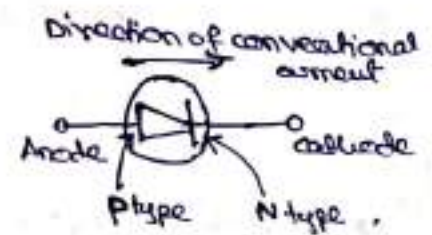 Direction of conventional
current
Anode
cathode
P type
N type.